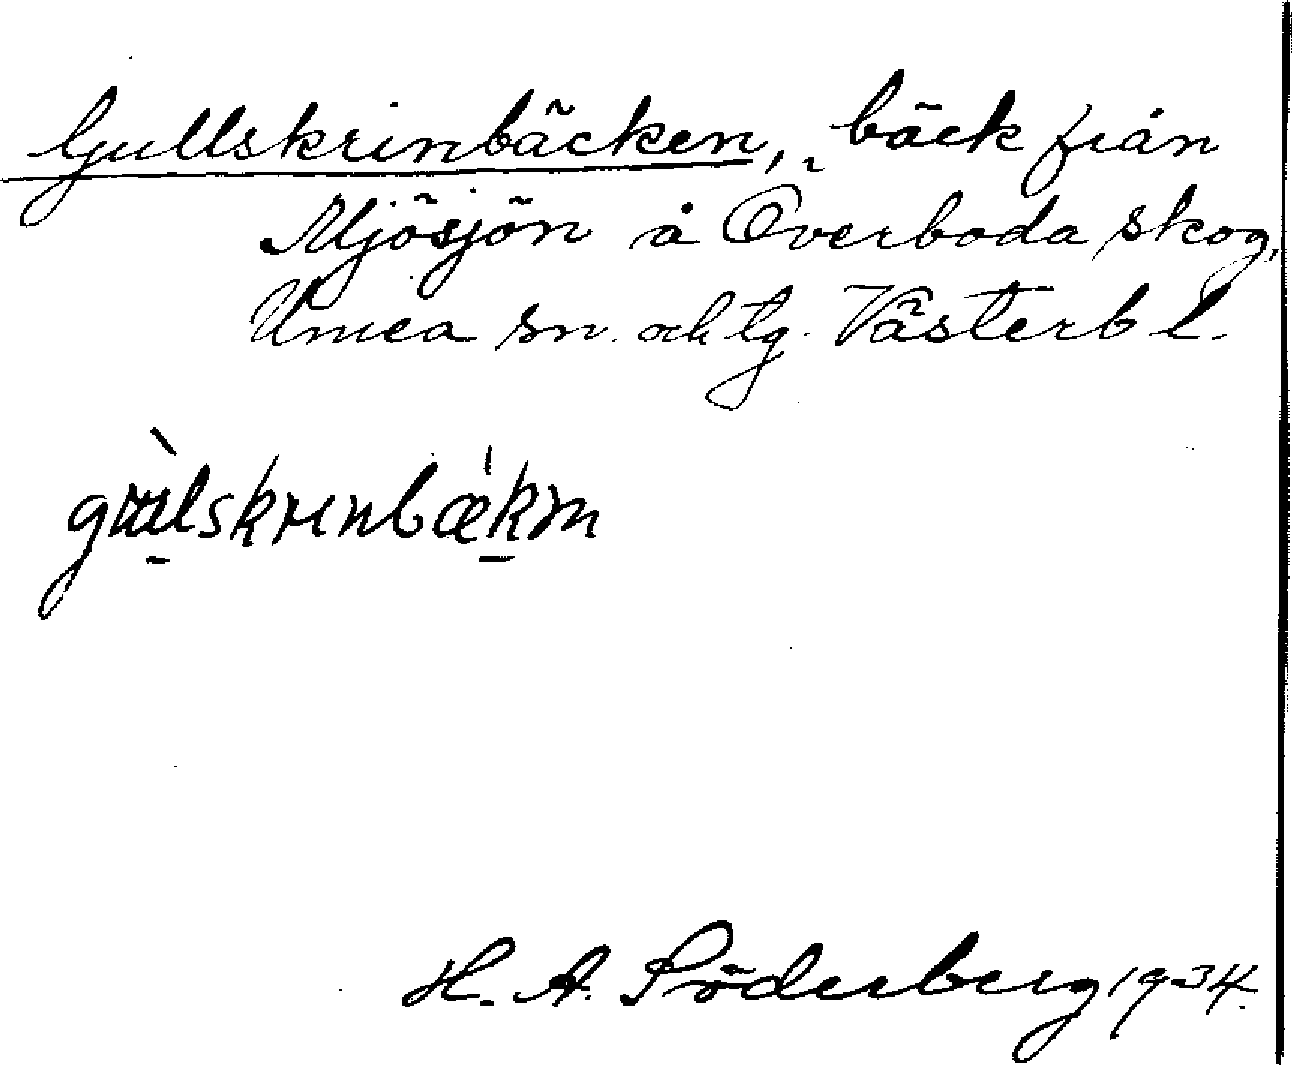 Gullskrinbäcken, bäck från
Mjösjön å Överboda skog,
Umeå sn. och tg. Västerb l.
H. A. Söderberg 1934.